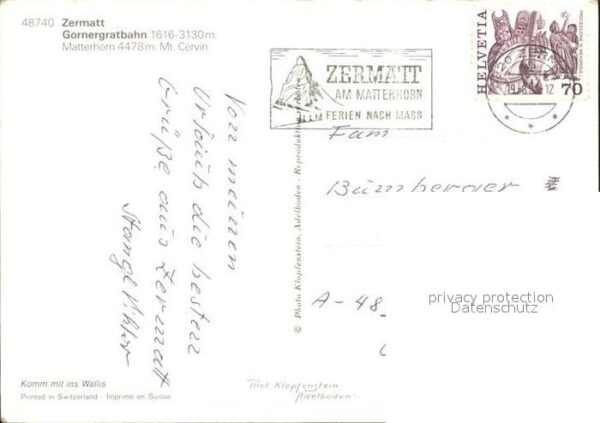 48740 Zermatt
Gornergratbahn 1616-3130 m
Matterhorn 4478 m. Mt. Cervin
ZERMATT
AM MATTERHORN
FERIEN NACH MASS
HELVETIA
70
Von meinen
Urlaub die besten
Grüße aus Zermatt
Stangl
Fam
A-48
© Photo Klopfenstein, Adelboden - Reproduktion verboten
privacy protection
Datenschutz
Komm mit ins Wallis
Printed in Switzerland - Imprimé en Suisse
Phot Klopfenstein
Adelboden